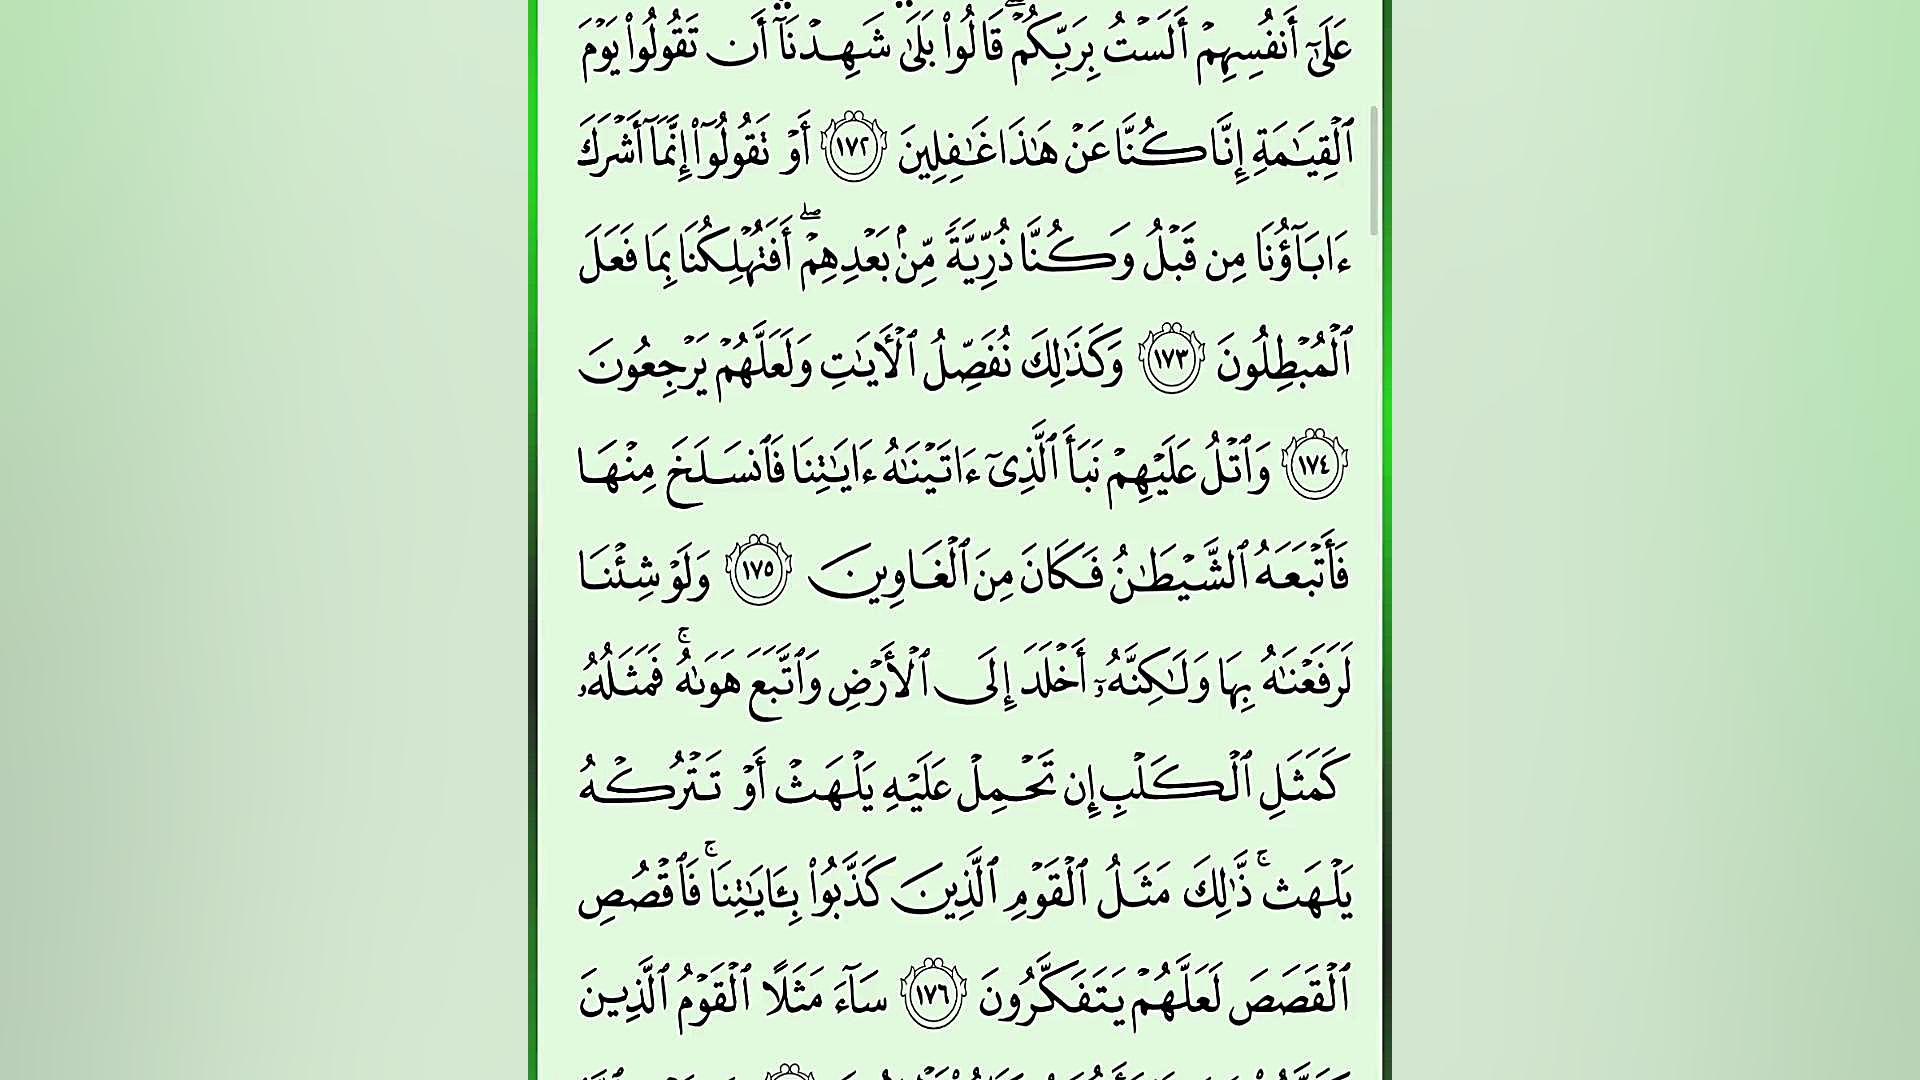 عَلَىٰٓ أَنفُسِهِمۡ أَلَسۡتُ بِرَبِّكُمۡۖ قَالُواْ بَلَىٰ شَهِدۡنَآ أَن تَقُولُواْ يَوۡمَ
ٱلۡقِيَٰمَةِ إِنَّا كُنَّا عَنۡ هَٰذَا غَٰفِلِينَ ١٧٢ أَوۡ تَقُولُوٓاْ إِنَّمَآ أَشۡرَكَ
ءَابَآؤُنَا مِن قَبۡلُ وَكُنَّا ذُرِّيَّةٗ مِّنۢ بَعۡدِهِمۡۖ أَفَتُهۡلِكُنَا بِمَا فَعَلَ
ٱلۡمُبۡطِلُونَ ١٧٣ وَكَذَٰلِكَ نُفَصِّلُ ٱلۡأٓيَٰتِ وَلَعَلَّهُمۡ يَرۡجِعُونَ
١٧٤ وَٱتۡلُ عَلَيۡهِمۡ نَبَأَ ٱلَّذِيٓ ءَاتَيۡنَٰهُ ءَايَٰتِنَا فَٱنسَلَخَ مِنۡهَا
فَأَتۡبَعَهُ ٱلشَّيۡطَٰنُ فَكَانَ مِنَ ٱلۡغَاوِينَ ١٧٥ وَلَوۡ شِئۡنَا
لَرَفَعۡنَٰهُ بِهَا وَلَٰكِنَّهُۥٓ أَخۡلَدَ إِلَى ٱلۡأَرۡضِ وَٱتَّبَعَ هَوَىٰهُۚ فَمَثَلُهُۥ
كَمَثَلِ ٱلۡكَلۡبِ إِن تَحۡمِلۡ عَلَيۡهِ يَلۡهَثۡ أَوۡ تَتۡرُكۡهُ
يَلۡهَثۚ ذَّٰلِكَ مَثَلُ ٱلۡقَوۡمِ ٱلَّذِينَ كَذَّبُواْ بِـَٔايَٰتِنَاۚ فَٱقۡصُصِ
ٱلۡقَصَصَ لَعَلَّهُمۡ يَتَفَكَّرُونَ ١٧٦ سَآءَ مَثَلًا ٱلۡقَوۡمُ ٱلَّذِينَ